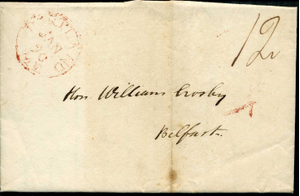 JAN
12
Hon. William Crosby
Belfast.